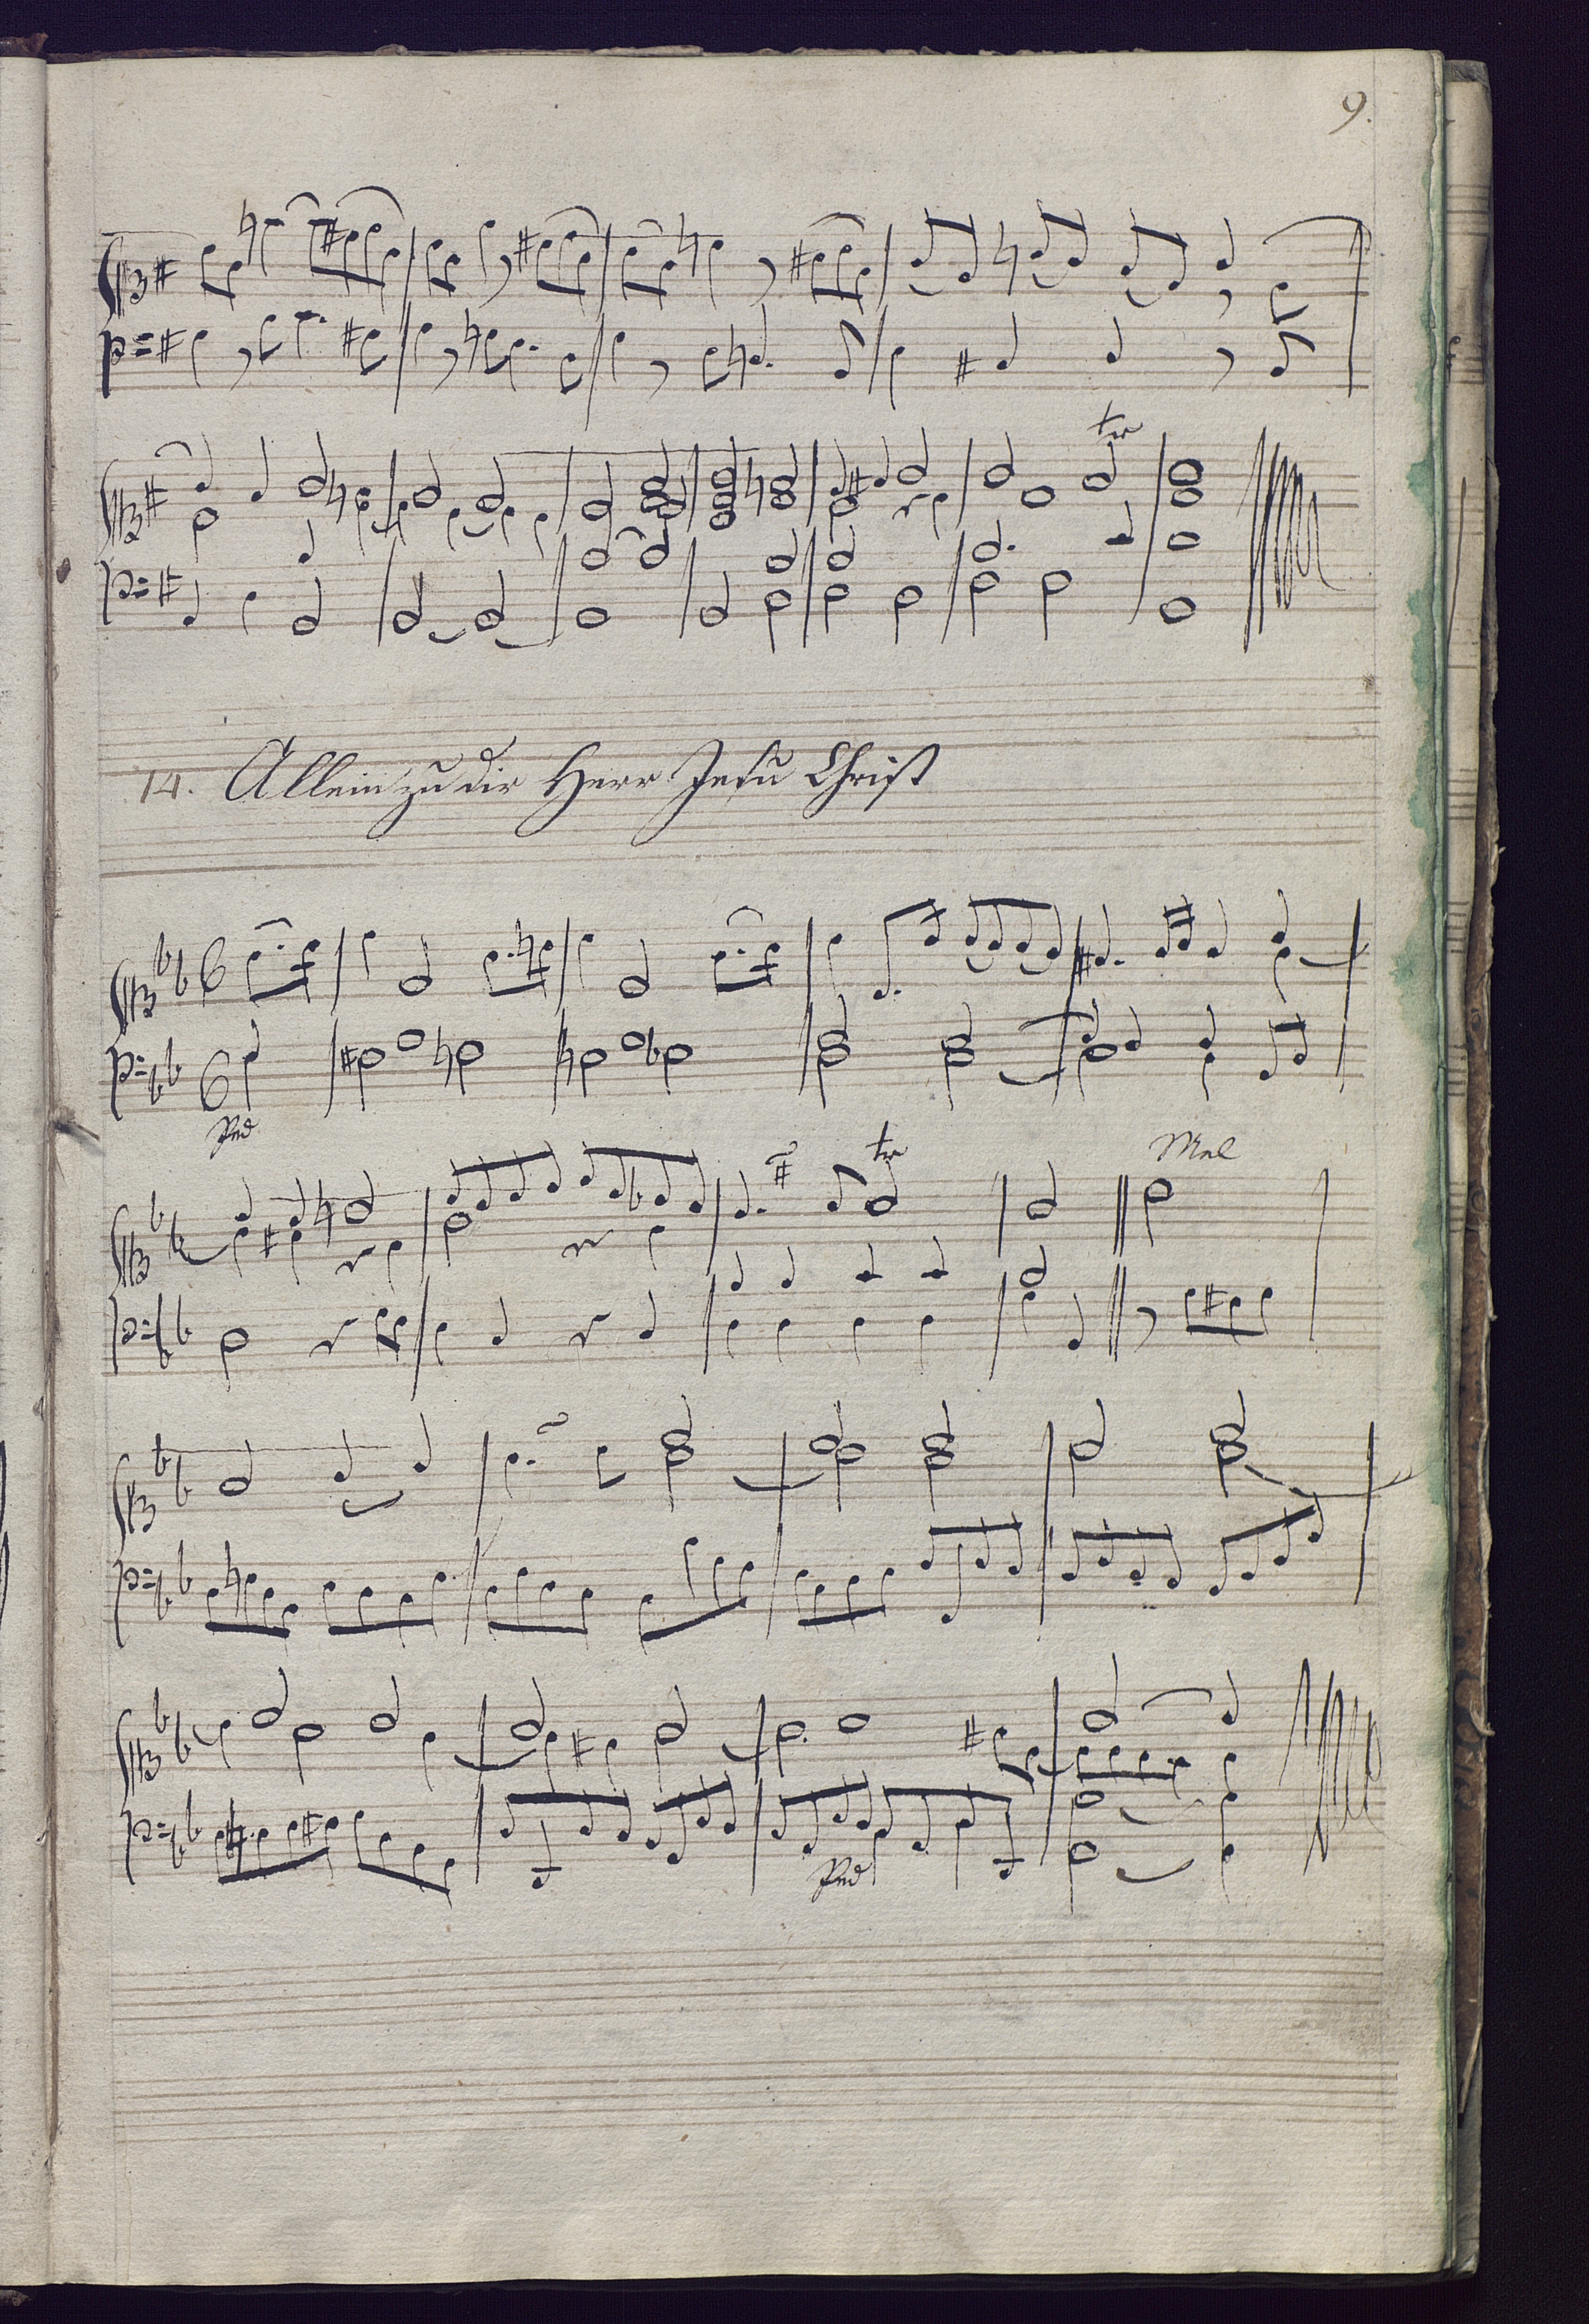 9.
tr
14. Allein zu dir Herr Jesu Christ
Ped
tr
Mal
Ped